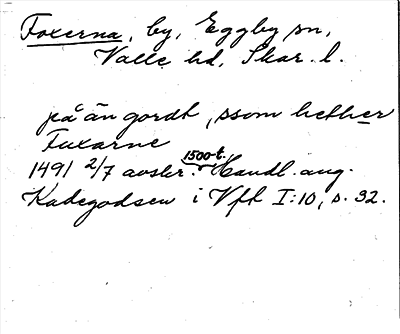 Foxerna, by, Eggby sn,
Valle hd, Skar. l.
på än gordt, ssom hether
Fuxarne
1491 2/7 avskr. 1500-t. Handl. ang.
Kadegodsen i Vfh I:10, s. 32.